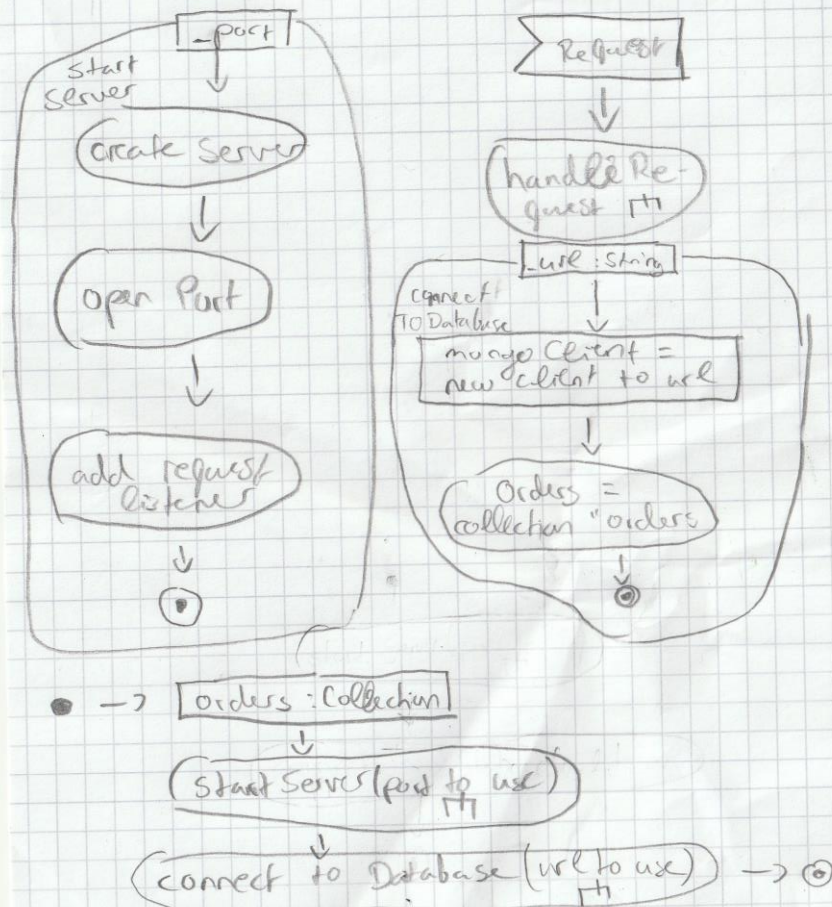 _port
start
server
create Server
open Port
add request
listener
Request
handle Re-
quest
_url : String
connect
TO Database
mongo Client =
new client to url
orders =
collection "orders
orders : Collection
start Server (port to use)
connect to Database (url to use)